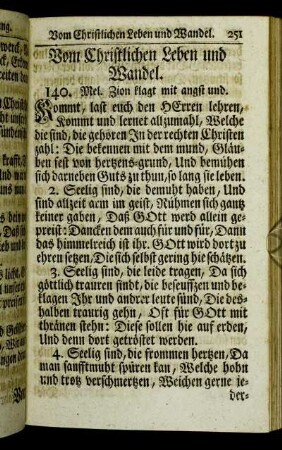 Vom Christlichen Leben und Wandel. 251
Vom Christlichen Leben und
Wandel.
140. Mel. Zion klagt mit angst und.
Kommt, last euch den HErren lehren,
Kommt und lernet allzumahl, Welche
die sind, die gehören In der rechten Christen
zahl: Die bekennen mit dem mund, Gläu-
ben fest von hertzens-grund, Und bemühen
sich darneben Guts zu thun, so lang sie leben.
2. Seelig sind, die demuht haben, Und
sind allzeit arm im geist, Rühmen sich gantz
keiner gaben, Daß GOtt werd allein ge-
preist: Dancken dem auch für und für, Dann
das himmelreich ist ihr. GOtt wird dort zu
ehren setzen, Die sich selbst gering hie schätzen.
3. Seelig sind, die leide tragen, Da sich
göttlich trauren findt, die beseuffzen und be-
klagen Ihr und andrer leute sünd, Die des-
halben traurig gehn, Oft für GOtt mit
thränen stehn: Diese sollen hie auf erden,
Und denn dort getröstet werden.
4. Seelig sind, die frommen hertzen, Da
man sanfftmuht spüren kan, Welche hohn
und trotz verschmertzen, Weichen gerne je-
der-